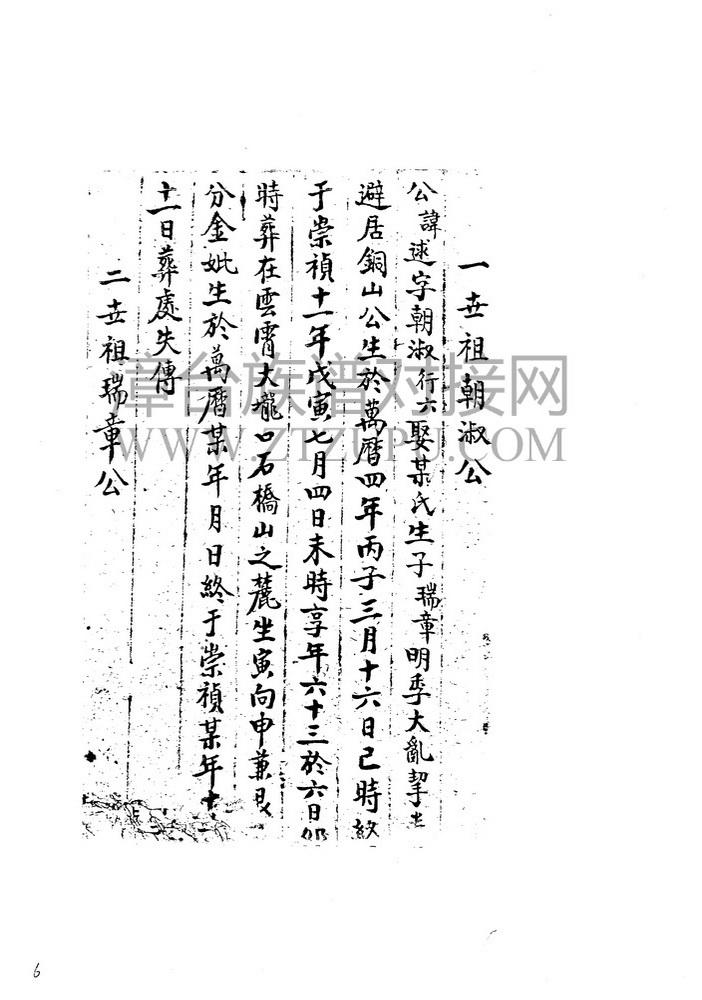 一世祖朝淑公
公諱逑字朝淑行六娶某氏生子瑞章明季大亂挈
避居銅山公生於萬曆四年丙子三月十六日巳時終
于崇禎十一年戊寅七月四日未時享年六十三於六日
時葬在雲霄大壠口石橋山之麓坐寅向申兼艮
分金妣生於萬曆某年月日終于崇禎某年十
十一日葬處失傳
二世祖瑞章公
漳台族谱对接网
WWW.ZTZUPU.COM
6